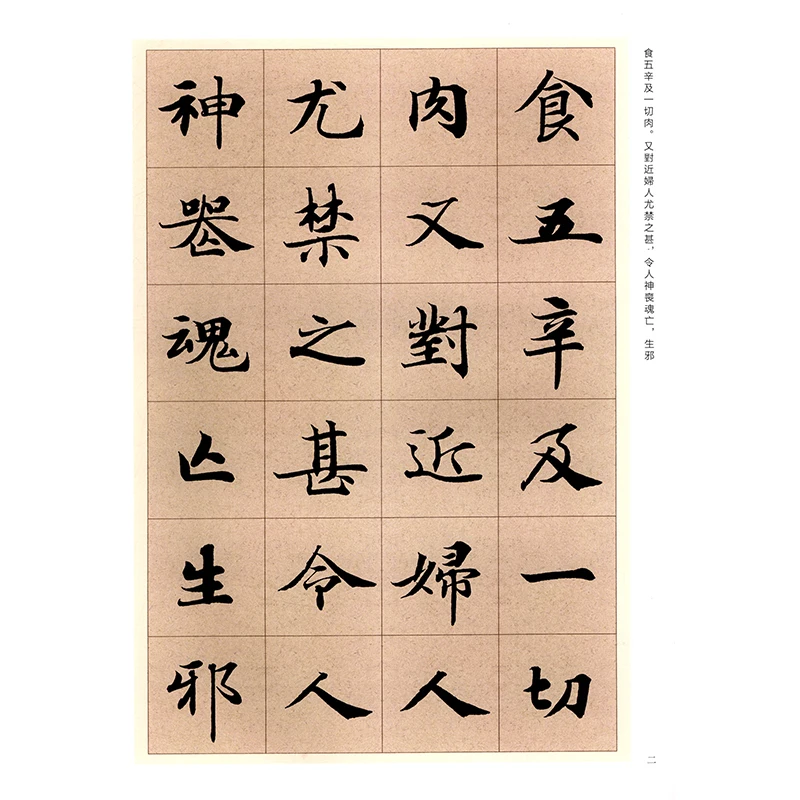 食五辛及一切
肉又對近婦人
尤禁之甚令人
神喪魂亡生邪
食五辛及一切肉。又對近婦人尤禁之甚，令人神喪魂亡，生邪
二